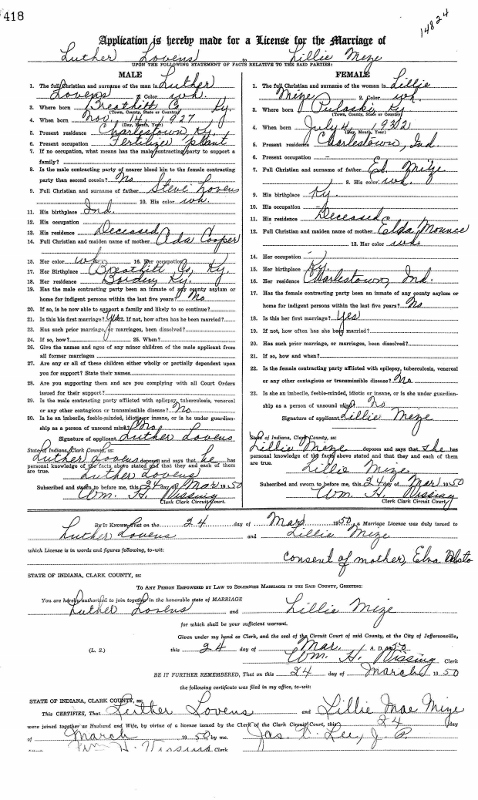 418
14824
Application is hereby made for a License for the Marriage of
Luther Lovens to Lillie Mize
UPON THE FOLLOWING STATEMENT OF FACTS RELATIVE TO THE SAID PARTIES:
MALE
1. The full Christian and surname of the man is Luther
Lovens 2. Color wh.
3. Where born Breathitt Co Ky.
(Town, County, State or Country)
4. When born Nov. 14 1927
(Day, Month, Year)
5. Present residence Charlestown, Ky.
6. Present occupation Fertilizer plant
7. If no occupation, what means has the male contracting party to support a
family?
8. Is the male contracting party of nearer blood kin to the female contracting
party than second cousin? No
9. Full Christian and surname of father Steve Lovens
10. His color wh.
11. His birthplace Ind.
12. His occupation
13. His residence Deceased
14. Full Christian and maiden name of mother Ada Cooper
15. Her color wh 16. Her occupation
17. Her birthplace Breathitt Co, Ky.
18. Her residence Borden Ky.
19. Has the male contracting party been an inmate of any county asylum or
home for indigent persons within the last five years? No
20. If so, is he now able to support a family and likely to so continue?
21. Is this his first marriage? Yes If not, how often has he been married?
23. Has such prior marriage, or marriages, been dissolved?
24. If so, how? 25. When?
26. Give the names and ages of any minor children of the male applicant from
all former marriages
27. Are any or all of these children either wholly or partially dependent upon
you for support? State their names.
28. Are you supporting them and are you complying with all Court Orders
issued for their support?
29. Is the male contracting party afflicted with epilepsy, tuberculosis, venereal
or any other contagious or transmissible disease? No
30. Is he an imbecile, feeble-minded, idiotic or insane, or is he under guardian-
ship as a person of unsound mind? No
Signature of applicant Luther Lovens
State of Indiana, Clark County, ss:
Luther Lovens deposes and says that he has
personal knowledge of the facts above stated and that they and each of them
are true. Luther Lovens
Subscribed and sworn to before me, this 24 day of Mar 1950
Wm. H. Wissing
Clerk Clark Circuit Court.
FEMALE
1. The full Christian and surname of the woman is Lillie
Mize 2. Color wh.
3. Where born Pulaski Ky
(Town, County, State or Country)
4. When born July 4 1932
(Day, Month, Year)
5. Present residence Charlestown, Ind
6. Present occupation -
7. Full Christian and surname of father Ed. Mize
8. His color wh.
9. His birthplace Ky.
10. His occupation
11. His residence Deceased
12. Full Christian and maiden name of mother Elda Mounce
13. Her color wh.
14. Her occupation
15. Her birthplace Ky.
16. Her residence Charlestown, Ind.
17. Has the female contracting party been an inmate of any county asylum or
home for indigent persons within the last five years? No
18. Is this her first marriage? Yes
19. If not, how often has she been married?
20. Has such prior marriage, or marriages, been dissolved?
21. If so, how and when?
22. Is the female contracting party afflicted with epilepsy, tuberculosis, venereal
or any other contagious or transmissible disease? No
23. Is she an imbecile, feeble-minded, idiotic or insane, or is she under guardian-
ship as a person of unsound mind? No
Signature of applicant Lillie Mize
State of Indiana, Clark County, ss:
Lillie Mize deposes and says that she has
personal knowledge of the facts above stated and that they and each of them
are true. Lillie Mize
Subscribed and sworn to before me, this 24 day of Mar 1950
Wm. H. Wissing
Clerk Clark Circuit Court.
BE IT KNOWN, That on the 24 day of Mar 1950, a Marriage License was duly issued to
Luther Lovens and Lillie Mize
which License is in words and figures following, to-wit: consent of mother, Elva
STATE OF INDIANA, CLARK COUNTY, ss:
TO ANY PERSON EMPOWERED BY LAW TO SOLEMNIZE MARRIAGE IN THE SAID COUNTY, GREETING:
You are hereby authorized to join together in the honorable state of MARRIAGE
Luther Lovens and Lillie Mize
for which shall be your sufficient warrant.
Given under my hand as Clerk, and the seal of the Circuit Court of said County, at the City of Jeffersonville,
(L. S.) this 24 day of Mar. A. D. 1950
Wm. H. Wissing Clerk
BE IT FURTHER REMEMBERED, That on this 24 day of March 1950
the following certificate was filed in my office, to-wit:
STATE OF INDIANA, CLARK COUNTY, ss:
This CERTIFIES, That Luther Lovens and Lillie Mae Mize
were joined together as Husband and Wife, by virtue of a license issued by the Clerk of the Clark Circuit Court, this 24 day
of March 1950 by me. Jas. W. Lee, J. P.
Wm H. Wissing Clerk